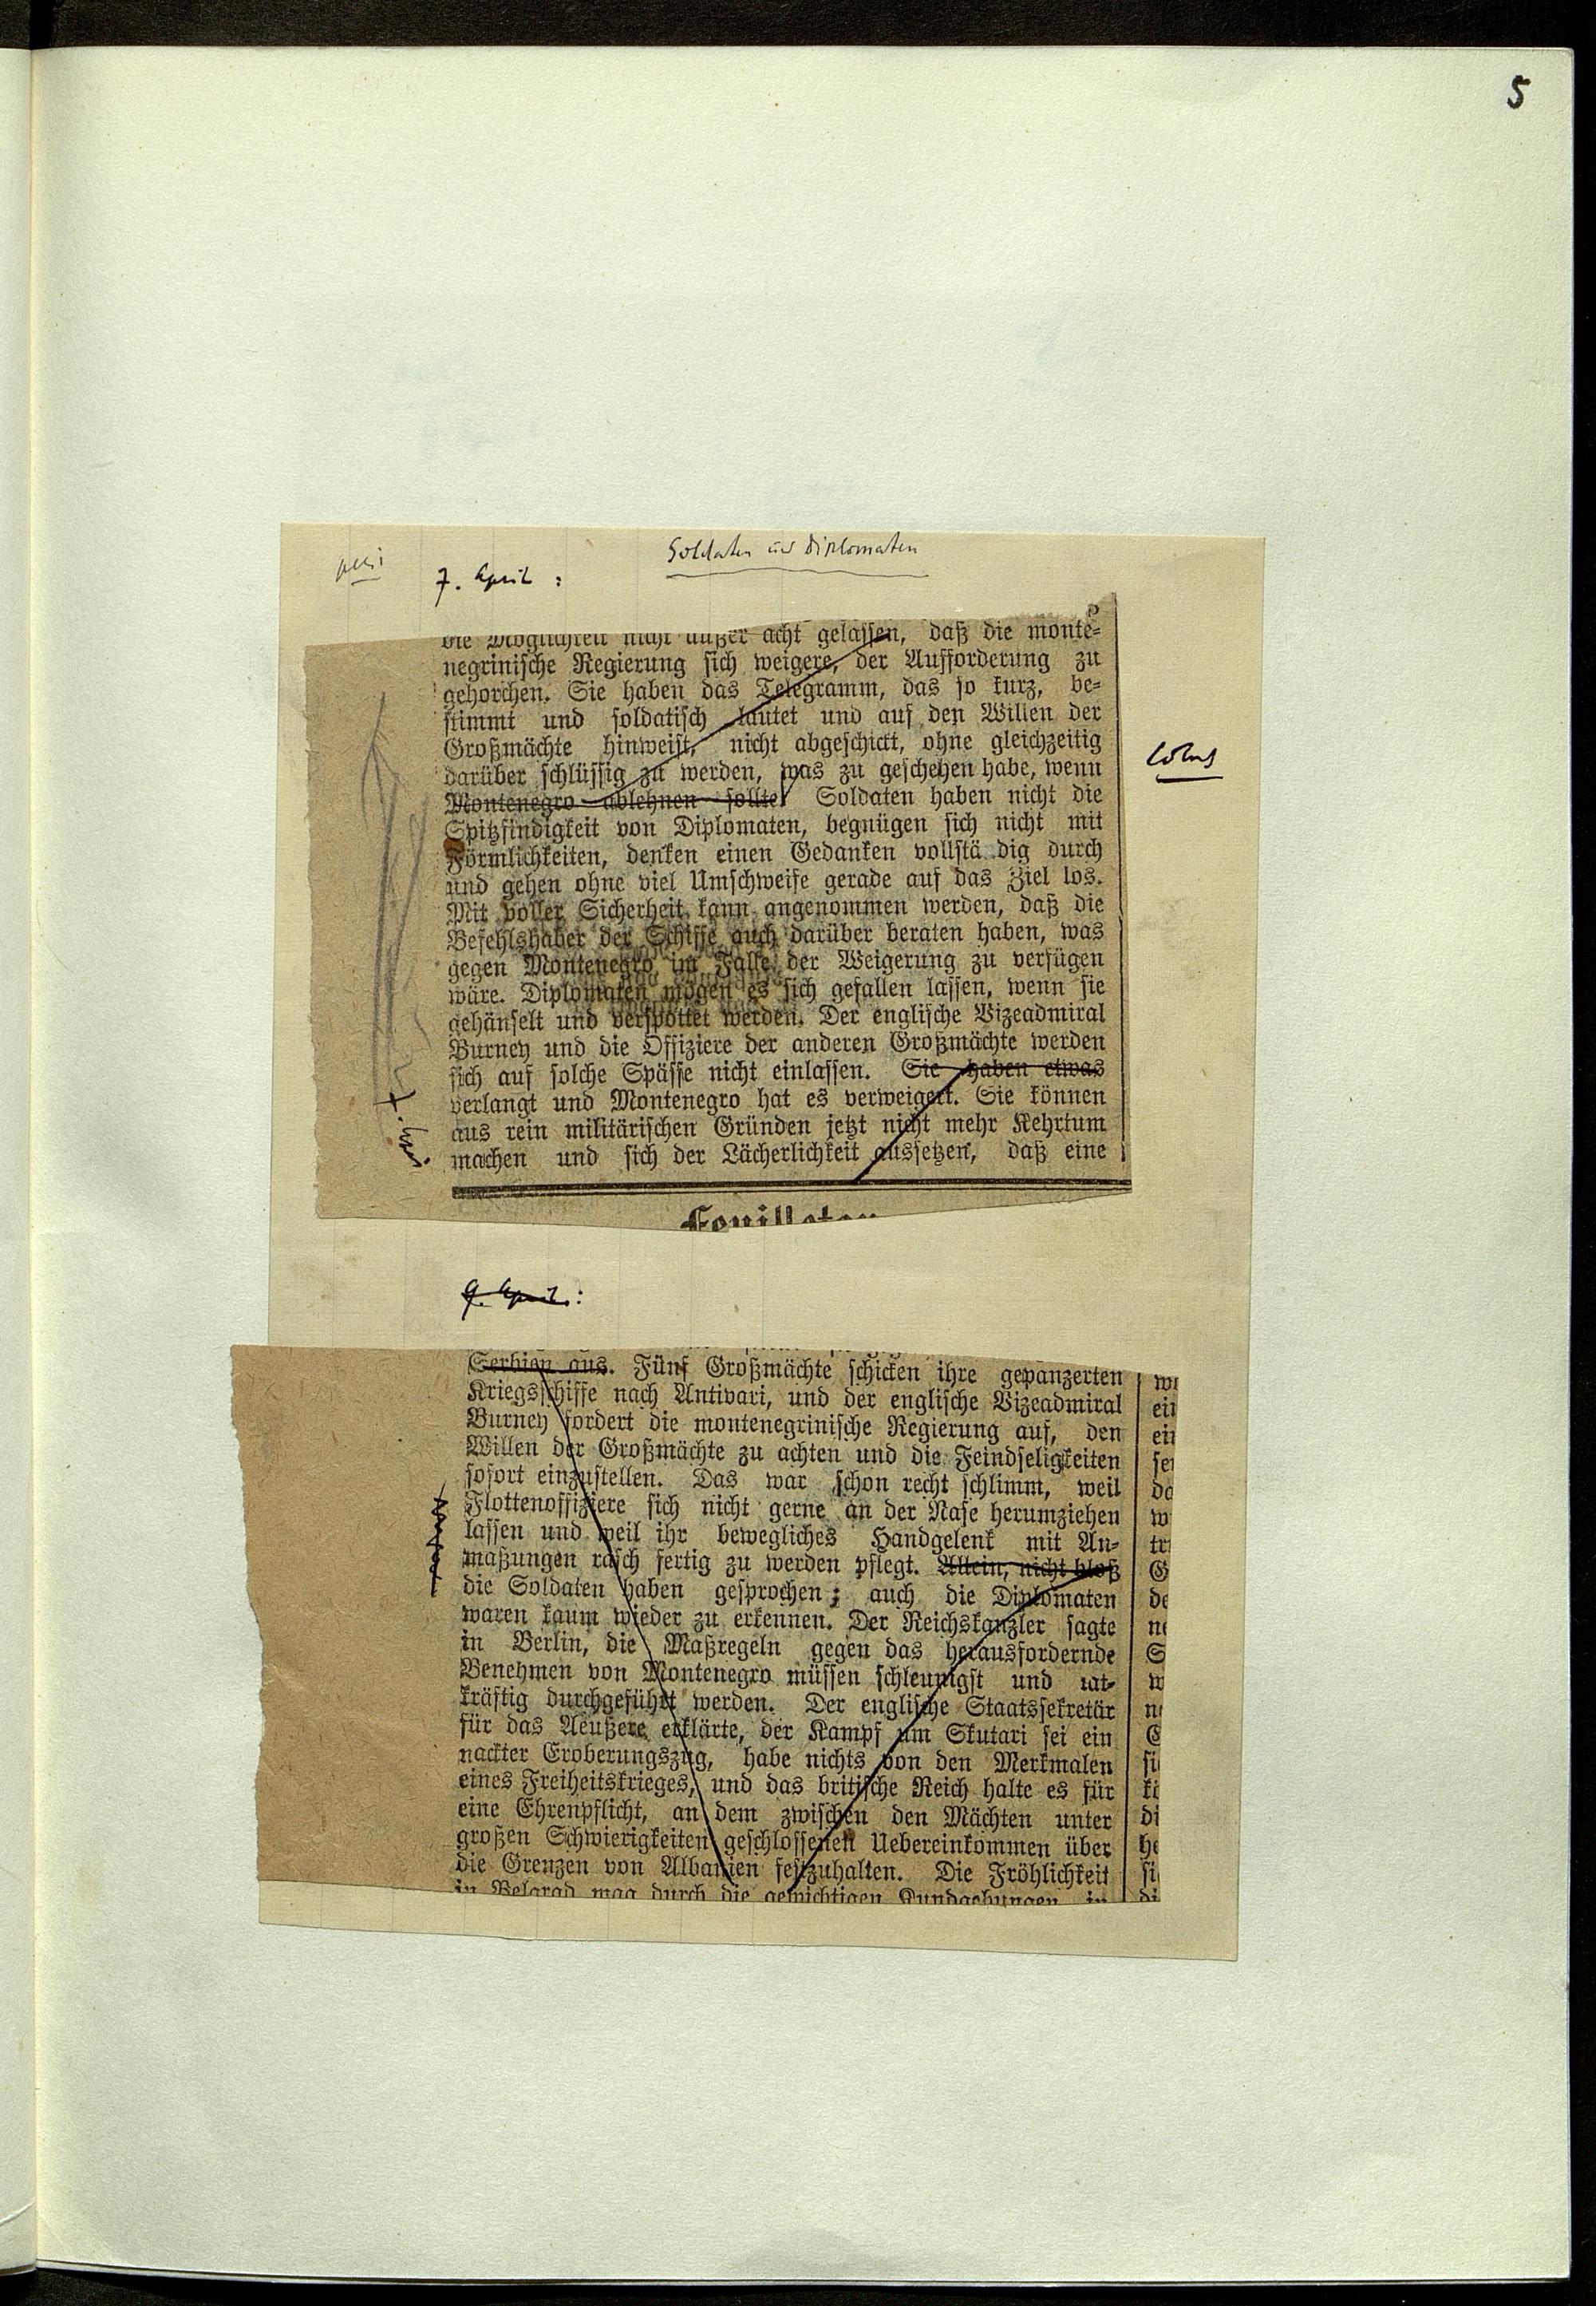 5
Soldaten und Diplomaten
7. April :
die Möglichkeit nicht außer acht gelassen, daß die monte-
negrinische Regierung sich weigere, der Aufforderung zu
gehorchen. Sie haben das Telegramm, das so kurz, be-
stimmt und soldatisch lautet und auf den Willen der
Großmächte hinweist, nicht abgeschickt, ohne gleichzeitig
darüber schlüssig zu werden, was zu geschehen habe, wenn
Montenegro ablehnen sollte. Soldaten haben nicht die
Spitzfindigkeit von Diplomaten, begnügen sich nicht mit
Förmlichkeiten, denken einen Gedanken vollstä dig durch
und gehen ohne viel Umschweife gerade auf das Ziel los.
Mit voller Sicherheit kann angenommen werden, daß die
Befehlshaber der Schiffe auch darüber beraten haben, was
gegen Montenegro im Falle der Weigerung zu verfügen
wäre. Diplomaten mögen es sich gefallen lassen, wenn sie
gehänselt und verspottet werden. Der englische Vizeadmiral
Burney und die Offiziere der anderen Großmächte werden
sich auf solche Spässe nicht einlassen. Sie haben etwas
verlangt und Montenegro hat es verweigert. Sie können
aus rein militärischen Gründen jetzt nicht mehr Kehrtum
machen und sich der Lächerlichkeit aussetzen, daß eine
Feuilleton
9. April :
Serbien aus. Fünf Großmächte schicken ihre gepanzerten
Kriegsschiffe nach Antivari, und der englische Vizeadmiral
Burney fordert die montenegrinische Regierung auf, den
Willen der Großmächte zu achten und die Feindseligkeiten
sofort einzustellen. Das war schon recht schlimm, weil
Flottenoffiziere sich nicht gerne an der Nase herumziehen
lassen und weil ihr bewegliches Handgelenk mit An-
maßungen rasch fertig zu werden pflegt. Allein, nicht bloß
die Soldaten haben gesprochen; auch die Diplomaten
waren kaum wieder zu erkennen. Der Reichskanzler sagte
in Berlin, die Maßregeln gegen das herausfordernde
Benehmen von Montenegro müssen schleunigst und tat-
kräftig durchgeführt werden. Der englische Staatssekretär
für das Aeußere erklärte, der Kampf um Skutari sei ein
nackter Eroberungszug, habe nichts von den Merkmalen
eines Freiheitskrieges, und das britische Reich halte es für
eine Ehrenpflicht, an dem zwischen den Mächten unter
großen Schwierigkeiten geschlossenen Uebereinkommen über
die Grenzen von Albanien festzuhalten. Die Fröhlichkeit
in Belgrad mag durch die gewichtigen Kundgebungen in